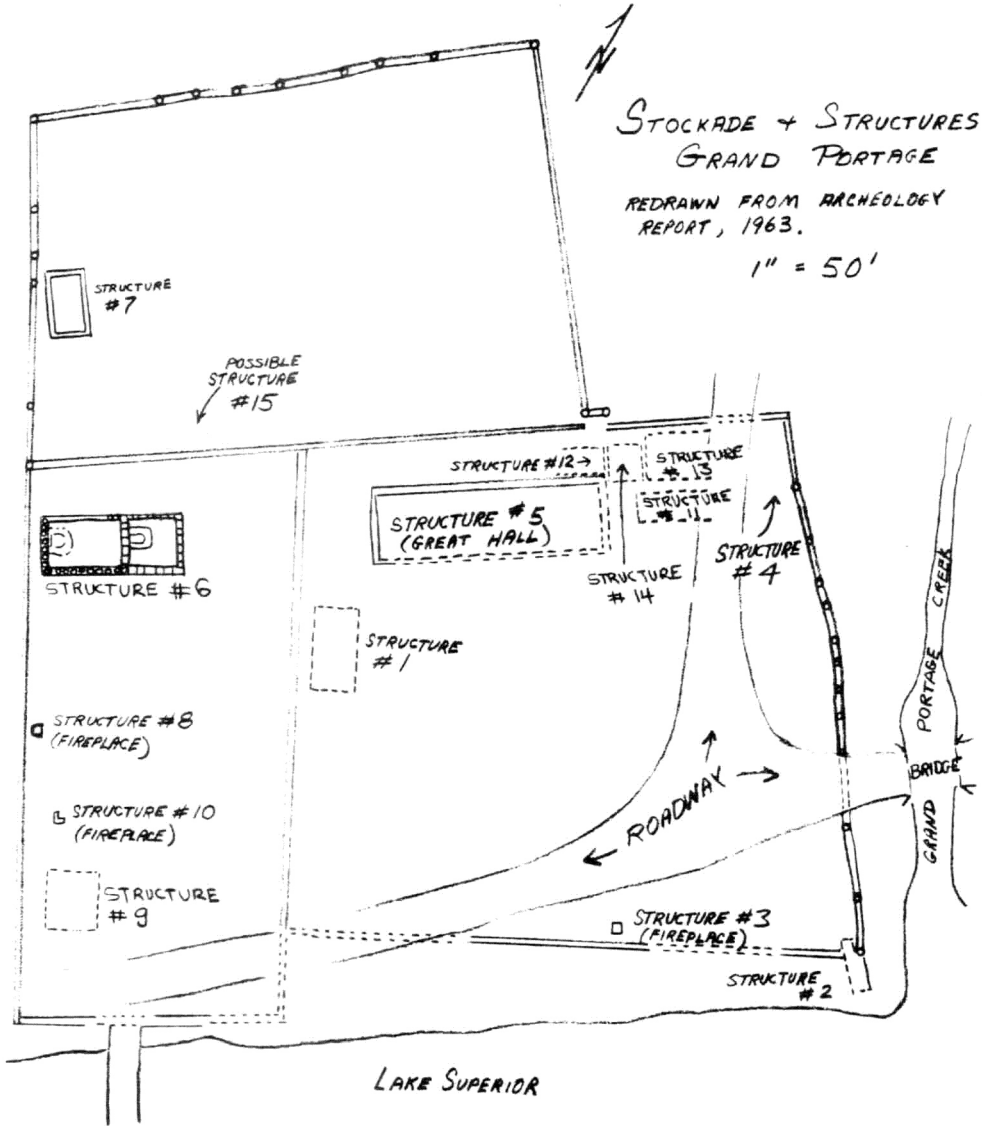 N
STOCKADE + STRUCTURES
GRAND PORTAGE
REDRAWN FROM ARCHEOLOGY
REPORT, 1963.
1" = 50'
STRUCTURE
#7
POSSIBLE
STRUCTURE
#15
STRUCTURE #12
STRUCTURE
# 13
STRUCTURE #5
(GREAT HALL)
STRUCTURE
# 11
STRUCTURE
# 4
STRUCTURE
# 14
STRUCTURE #6
STRUCTURE
# 1
STRUCTURE #8
(FIREPLACE)
STRUCTURE #10
(FIREPLACE)
STRUCTURE
#9
ROADWAY
BRIDGE
GRAND PORTAGE CREEK
STRUCTURE #3
(FIREPLACE)
STRUCTURE
# 2
LAKE SUPERIOR